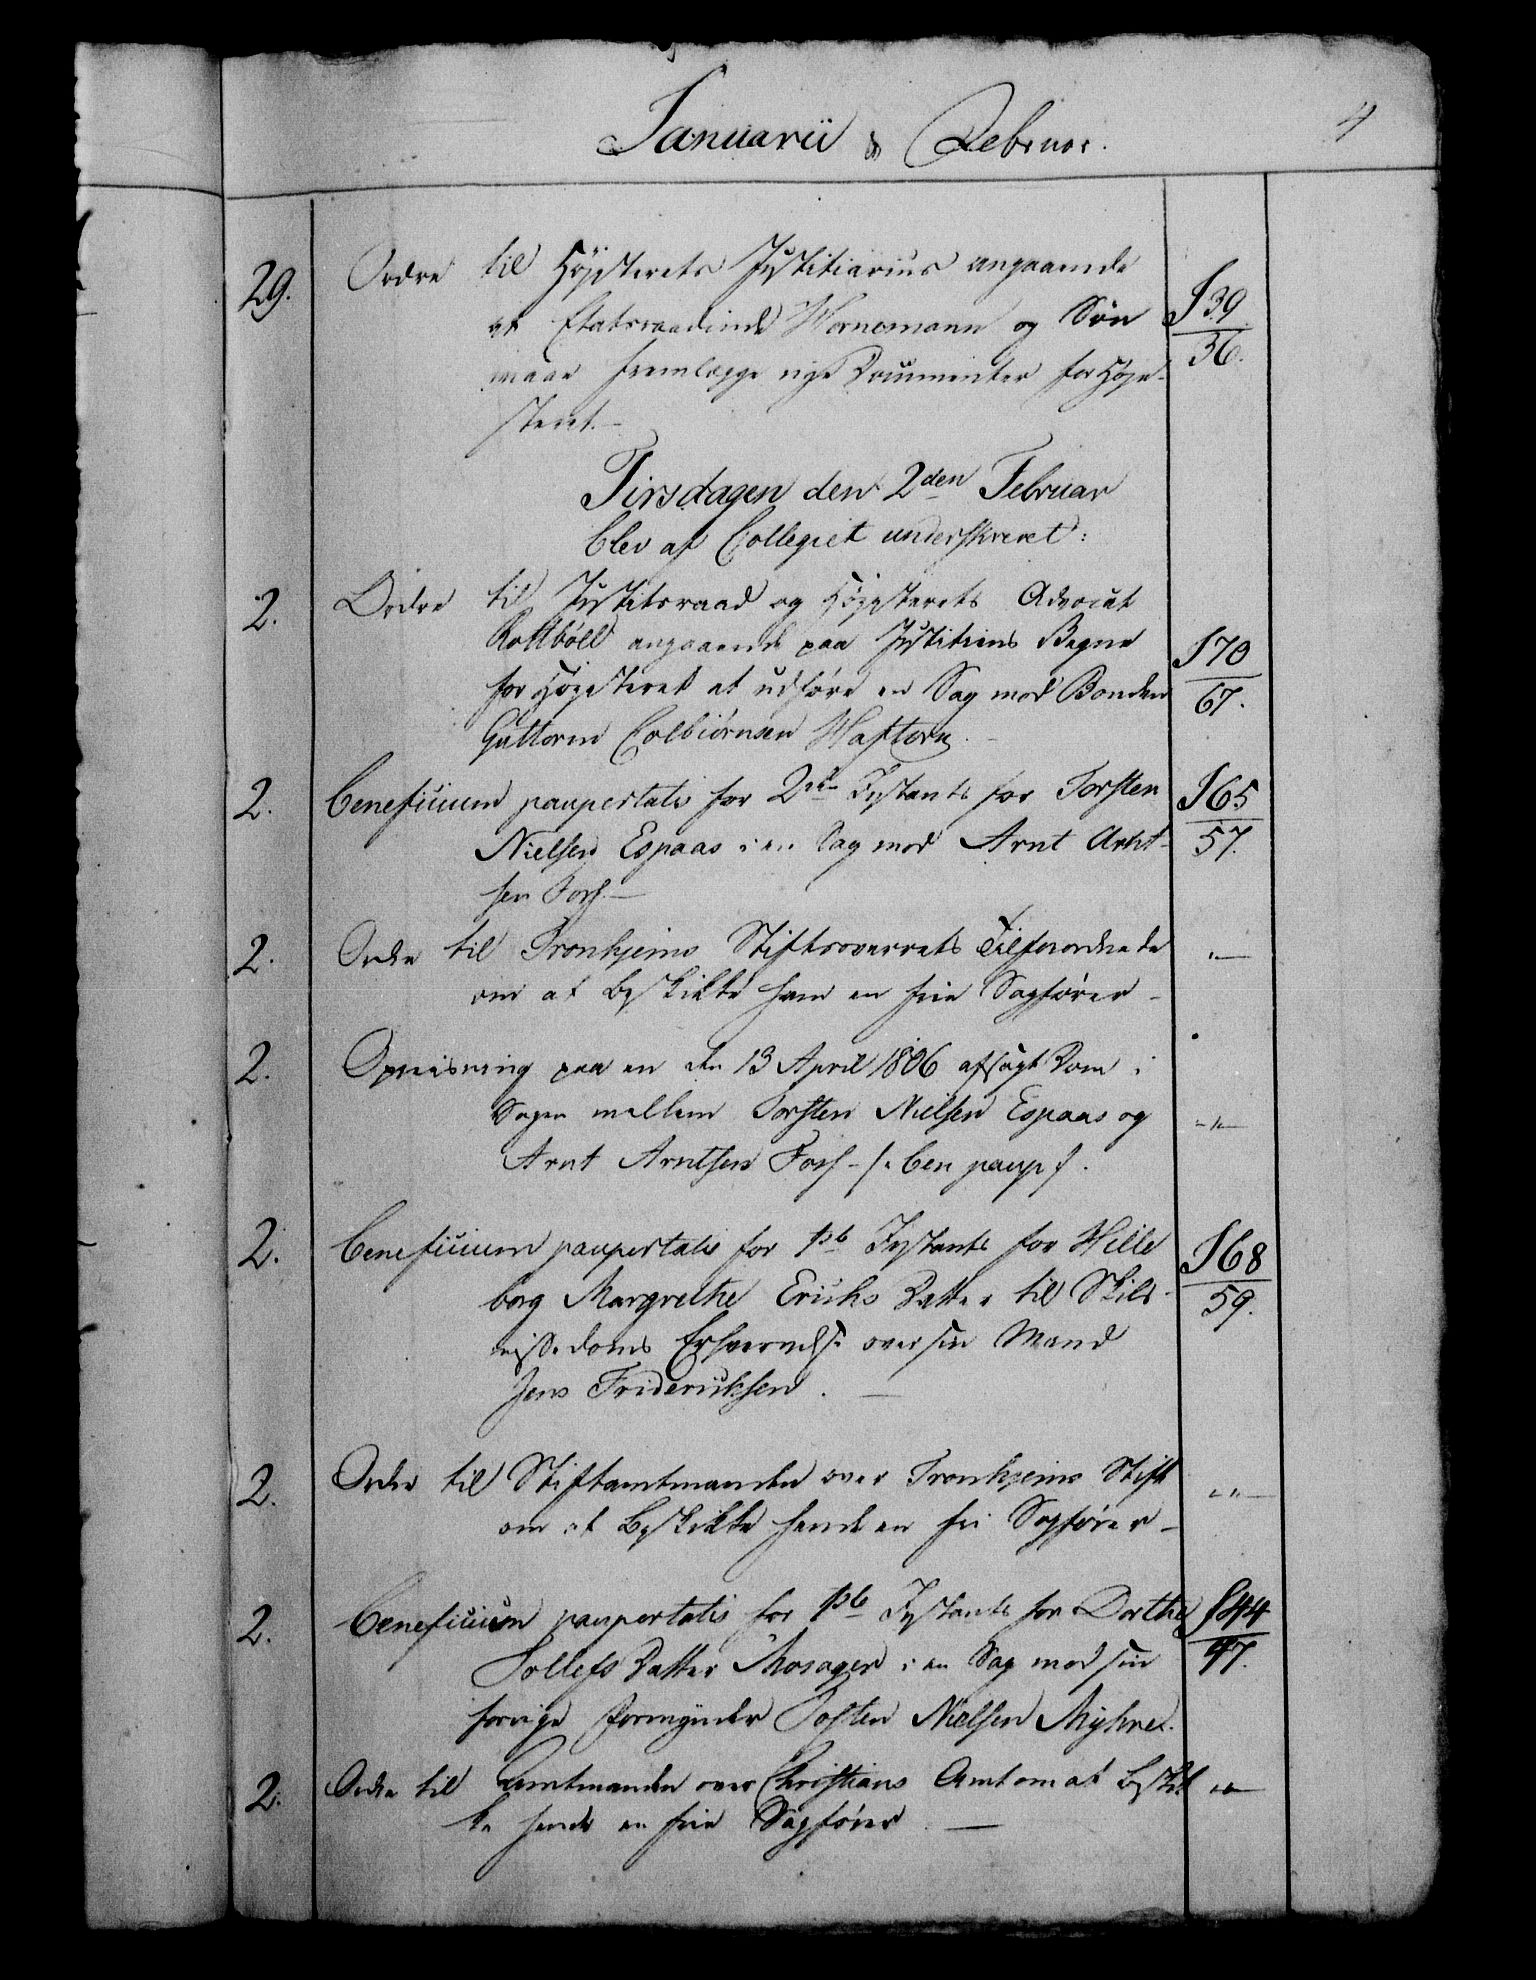 Januarii & Februar.
4
29. Ordre til Höjesterets Justitiarius angaaende
at Etatsraadinde Wornemann og Søn
maae fremlægge nye Documenter for Høje-
steret.—
J 39
36.
Tirsdagen den 2den Februar
blev af Collegiet underskrevet:
2. Ordre til Justitsraad og Höjesterets Advocat
Rottböll angaaende paa Justitiens Vegne
for Højesteret at udføre en Sag mod Bonden
Guttorm Colbiörnsen Haftorn.
J 70
67.
2. Beneficium paupertatis for 2den Instants for Torsten
Nielsen Espaas i en Sag mod Arnt Arnt-
sen Fors.—
J 65
57.
2. Ordre til Tronhjems Stiftsoverrets Tilforordnede
om at beskikke ham en frie Sagfører —
"—
2. Opreisning paa en den 13 April 1806 afsagt Dom i
Sagen mellem Torsten Nielsen Espaas og
Arnt Arntsen Fors - /: ben paup /.
-"—
2. Beneficium paupertatis for 1ste Instants for Hille
borg Margrethe Erichs Datter til Skils-
missedoms Erhvervelse over sin Mand
Jens Frideriksen. —
J 68
59.
2. Ordre til Stiftamtmanden over Tronhjems Stift
om at beskikke hende en fri Sagfører —
"—
2. Beneficium paupertatis for 1ste Instants for Dorthe
Tollefs Datter Mosager i en Sag mod sin
forrige Formynder Tosten Nielsen Myhre.
J 44
47.
2. Ordre til Amtmanden over Christians Amt om at beskik
ke hende en frie Sagfører. —
"—